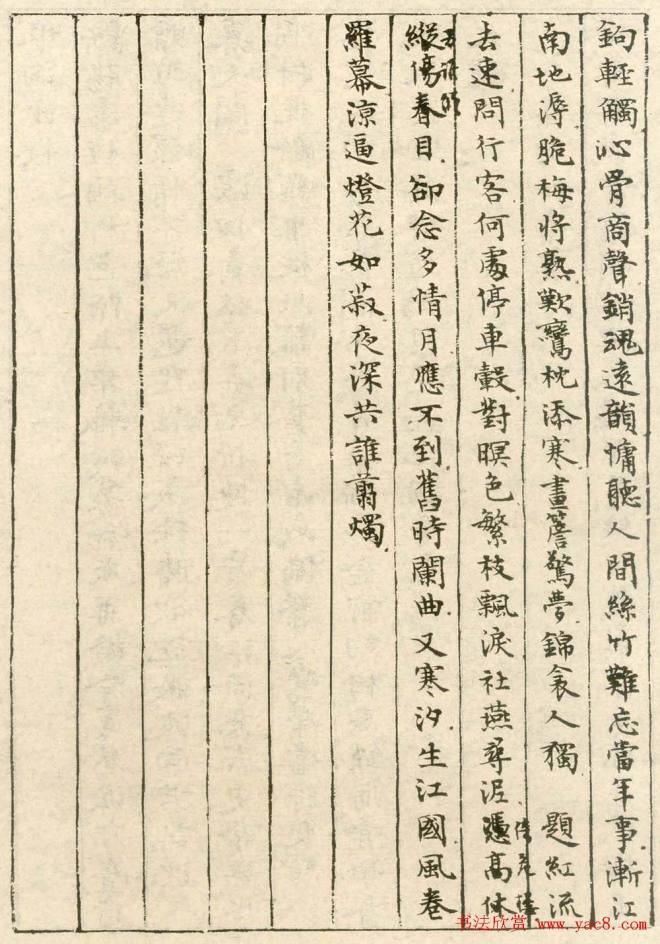 鉤輕觸沁骨商聲銷魂遠韻慵聽人間絲竹難忘當年事漸江
南地溽脆梅將熟歎鴛枕添寒畫簷驚夢錦衾人獨 題紅流
去速問行客何處停車轂對暝色繁枝飄淚社燕尋泥憑高休
縱傷春目卻念多情月應不到舊時闌曲又寒汐生江國風卷
羅幕涼逼燈花如菽夜深共誰翦燭
书法欣赏 www.yac8.com